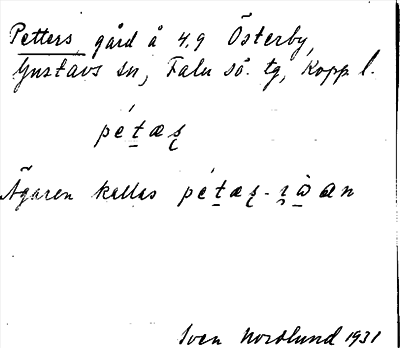 Petters gård å 4.9 Österby,
Gustavs sn, Falu sö. tg, Kopp l.
pétæʂ
Ägaren kallas pétæʂ-
Sven Nordlund 1931